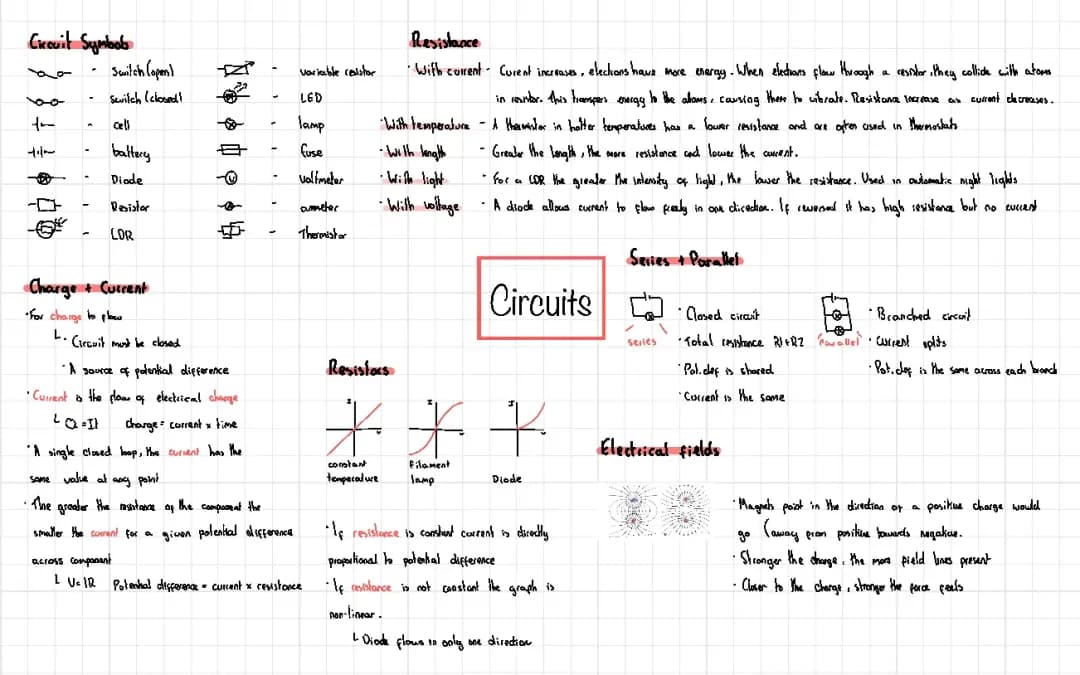 Circuit Symbols
Switch (open)
Switch (closed)
cell
battery
Diode
Resistor
LDR
variable resistor
LED
lamp
fuse
voltmeter
ammeter
Thermistor
Resistance
· With current - Curent increases, electrons have more energy. When electrons flow through a resistor, they collide with atoms
in resistor. This transfers energy to the atoms, causing them to vibrate. Resistance increase as current decreases.
· With temperature - A thermistor in hotter temperatures has a lower resistance and are often used in thermostats
· With length - Greater the length, the more resistance and lower the current.
· With light - For a LDR the greater the intensity of light, the lower the resistance. Used in automatic night lights
· With voltage - A diode allows current to flow freely in one direction. If reversed it has high resistance but no current
Charge + Current
· For charge to flow
· Circuit must be closed
· A source of potential difference
· Current is the flow of electrical charge
Q = It charge = current x time
· A single closed loop, the current has the
same value at any point
· The greater the resistance of the component the
smaller the current for a given potential difference
across component
V = IR Potential difference = current x resistance
Circuits
Resistors
I
I
I
constant
temperature
Filament
lamp
Diode
· If resistance is constant current is directly
proportional to potential difference
· If resistance is not constant the graph is
non-linear.
Diode flows in only one direction
Series + Parallel
series
· Closed circuit
· Total resistance R1+R2
· Pot. def is shared
· Current is the same
Parallel
· Branched circuit
· Current splits
· Pot. def is the same across each branch
Electrical fields
· Magnets point in the direction of a positive charge would
go (away from positive towards negative.
· Stronger the charge, the more field lines present
· Closer to the charge, stronger the force feels